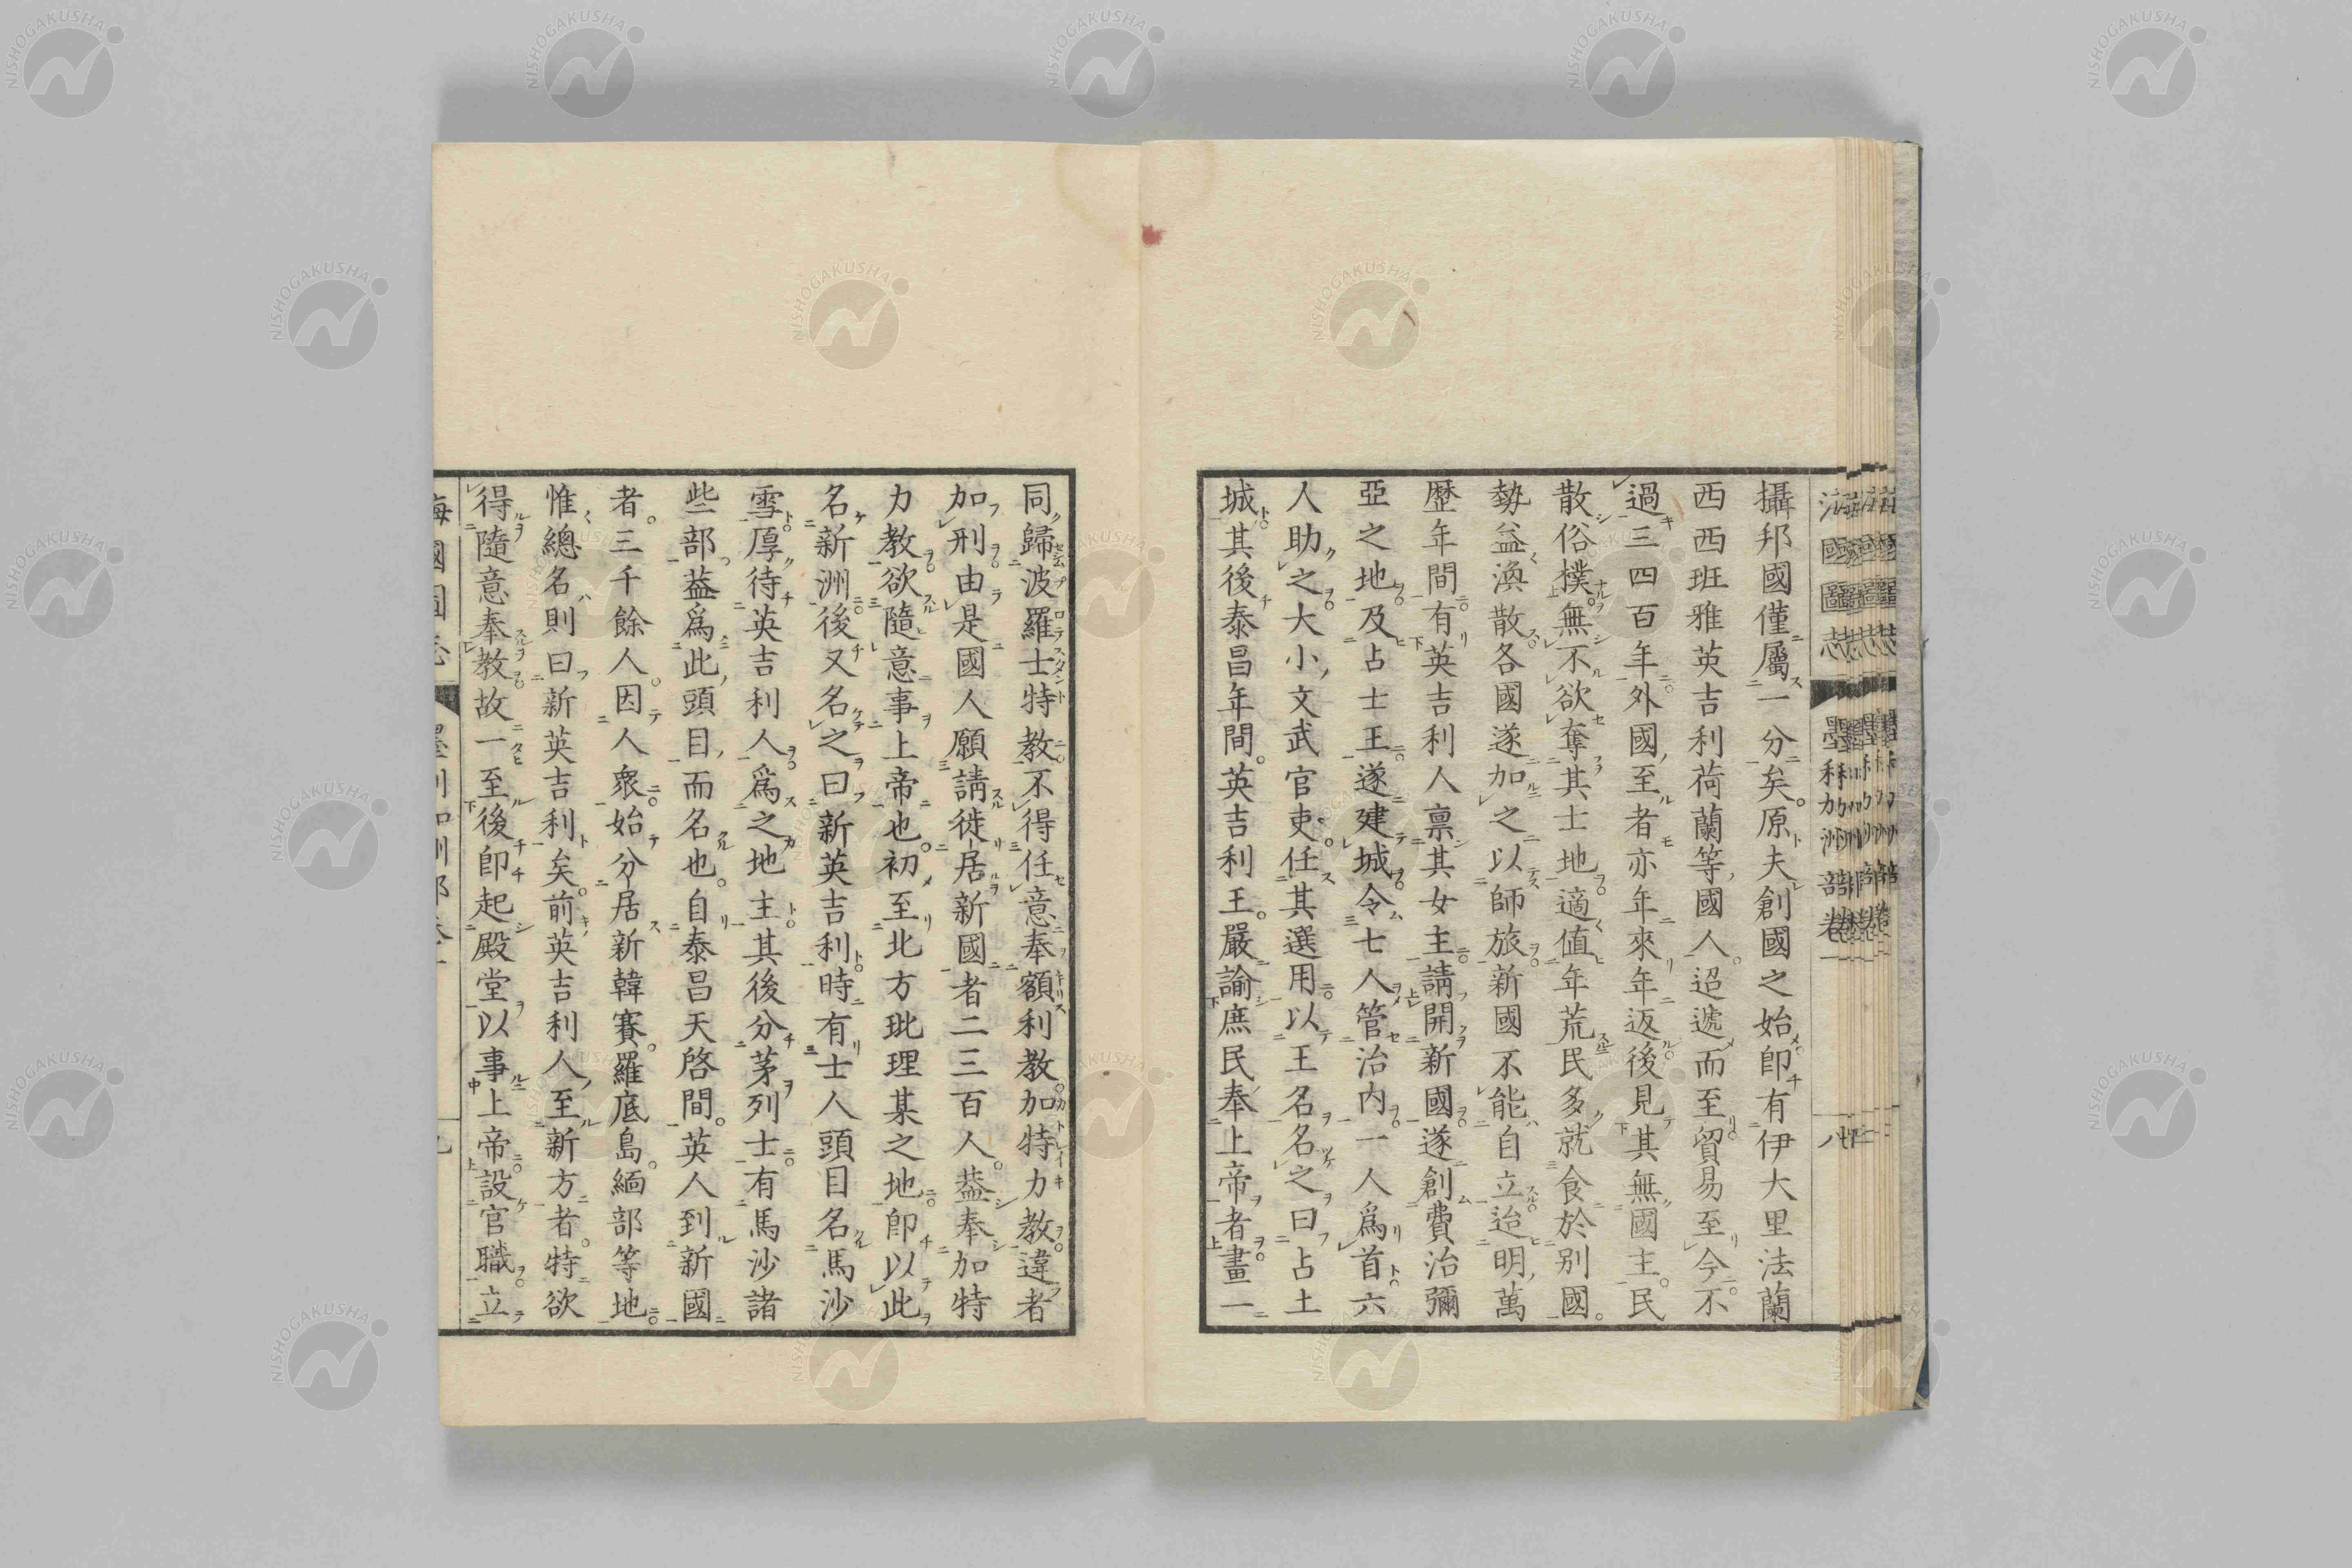 攝邦國僅屬一分矣。原夫創國之始即有伊大里法蘭
西西班雅英吉利荷蘭等國人。迢遞而至貿易至今。不
過三四百年外國至者亦年來年返後見其無國主。民
散俗樸。無不欲奪其士地。適値年荒民多就食於別國。
勢益渙散。各國遂加之以師旅。新國不能自立。迨明萬
歷年間。有英吉利人禀其女主。請開新國。遂創費治彌
亞之地。及占士王。遂建城。令七人管治内。一人爲首。六
人助之。大小文武官吏。任其選用。以王名名之曰占土
城。其後泰昌年間。英吉利王。嚴諭庶民奉上帝者。畫一
同歸波羅士特教。不得任意奉額利教。加特力教。違者
加刑。由是國人願請徙居新國者二三百人。葢奉加特
力教。欲隨意事上帝也。初至北方玭理某之地。即以此
名新洲。後又名之曰新英吉利。時有士人頭目名馬沙
雪。厚待英吉利人。爲之地主。其後分茅列士。有馬沙諸
些部。葢爲此頭目而名也。自泰昌天啓間。英人到新國
者。三千餘人。因人衆。始分居新韓賽。羅底島。緬部等地。
惟總名則曰新英吉利矣。前英吉利人至新方者。特欲
得隨意奉教。故一至後即起殿堂以事上帝。設官職。立
海國圖志
墨利加洲部卷一
八
NISHOGAKUSHA